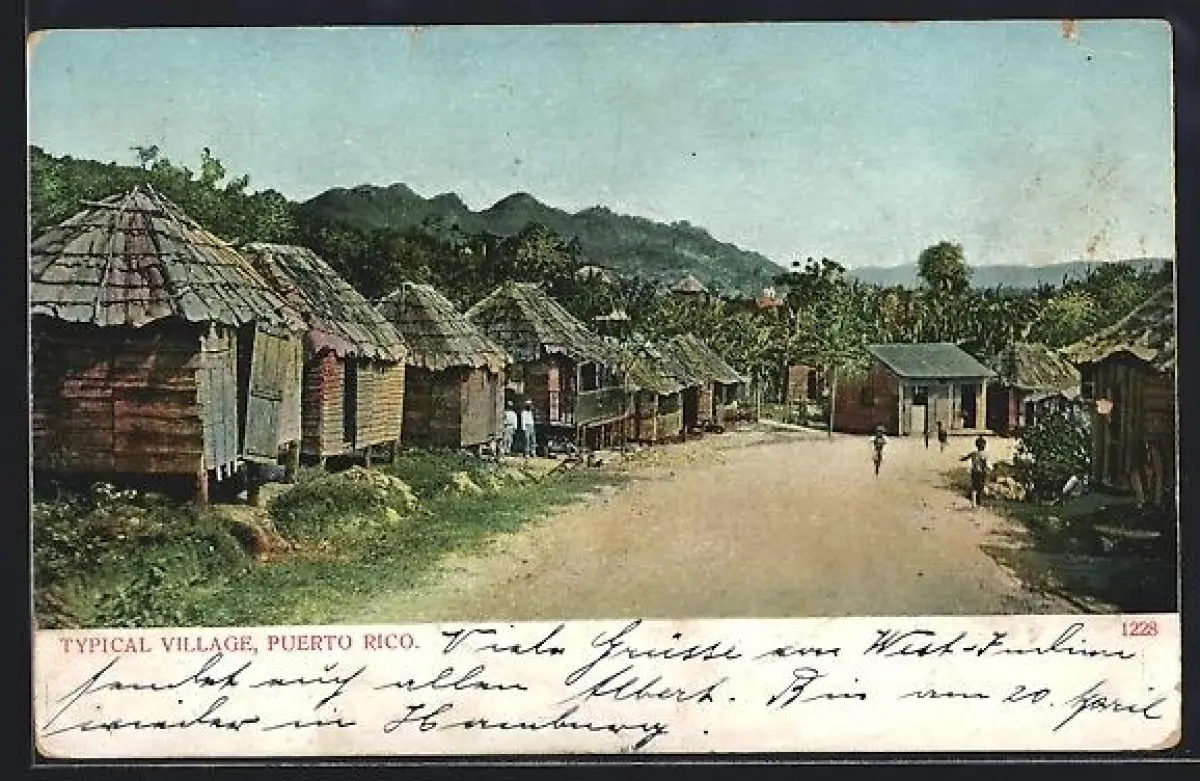 TYPICAL VILLAGE, PUERTO RICO.
1228
Viele Grüsse von West-Indien
sendet auch allen Albert. Bin am 20. April
wieder in Hamburg.